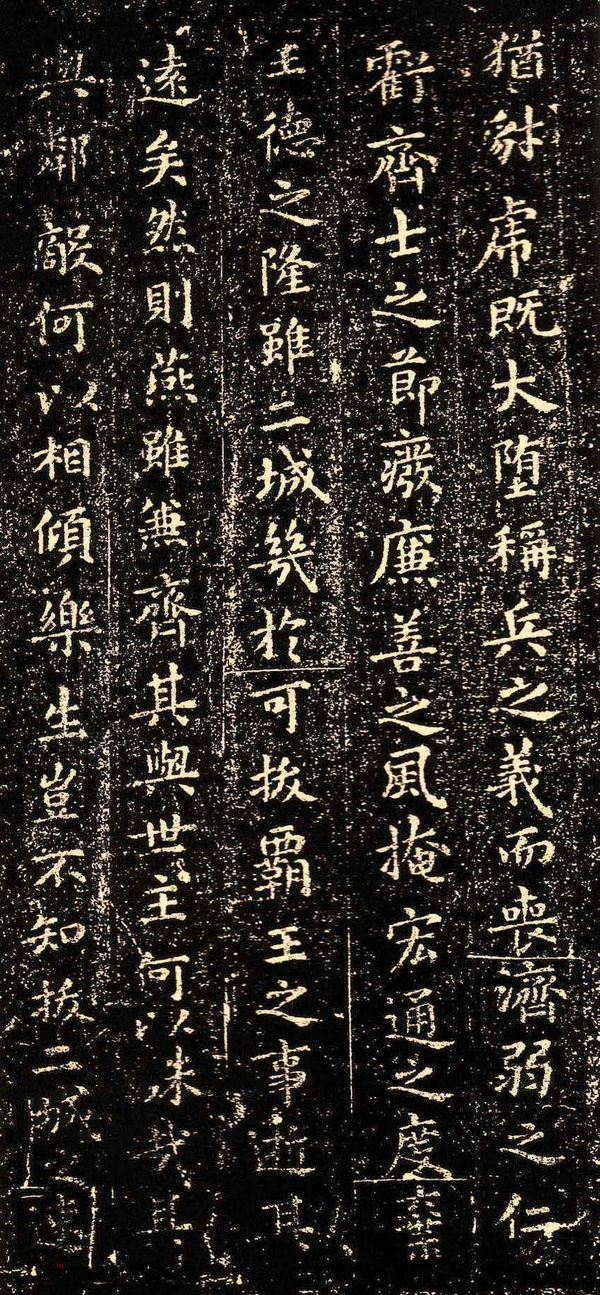 猶豺虎既大墮稱兵之義而喪濟弱之仁
虧齊士之節廢廉善之風掩宏通之度棄
王德之隆雖二城幾於可拔霸王之事逝其
遠矣然則燕雖兼齊其與世主何以殊哉其
與鄰敵何以相傾樂生豈不知拔二城之速